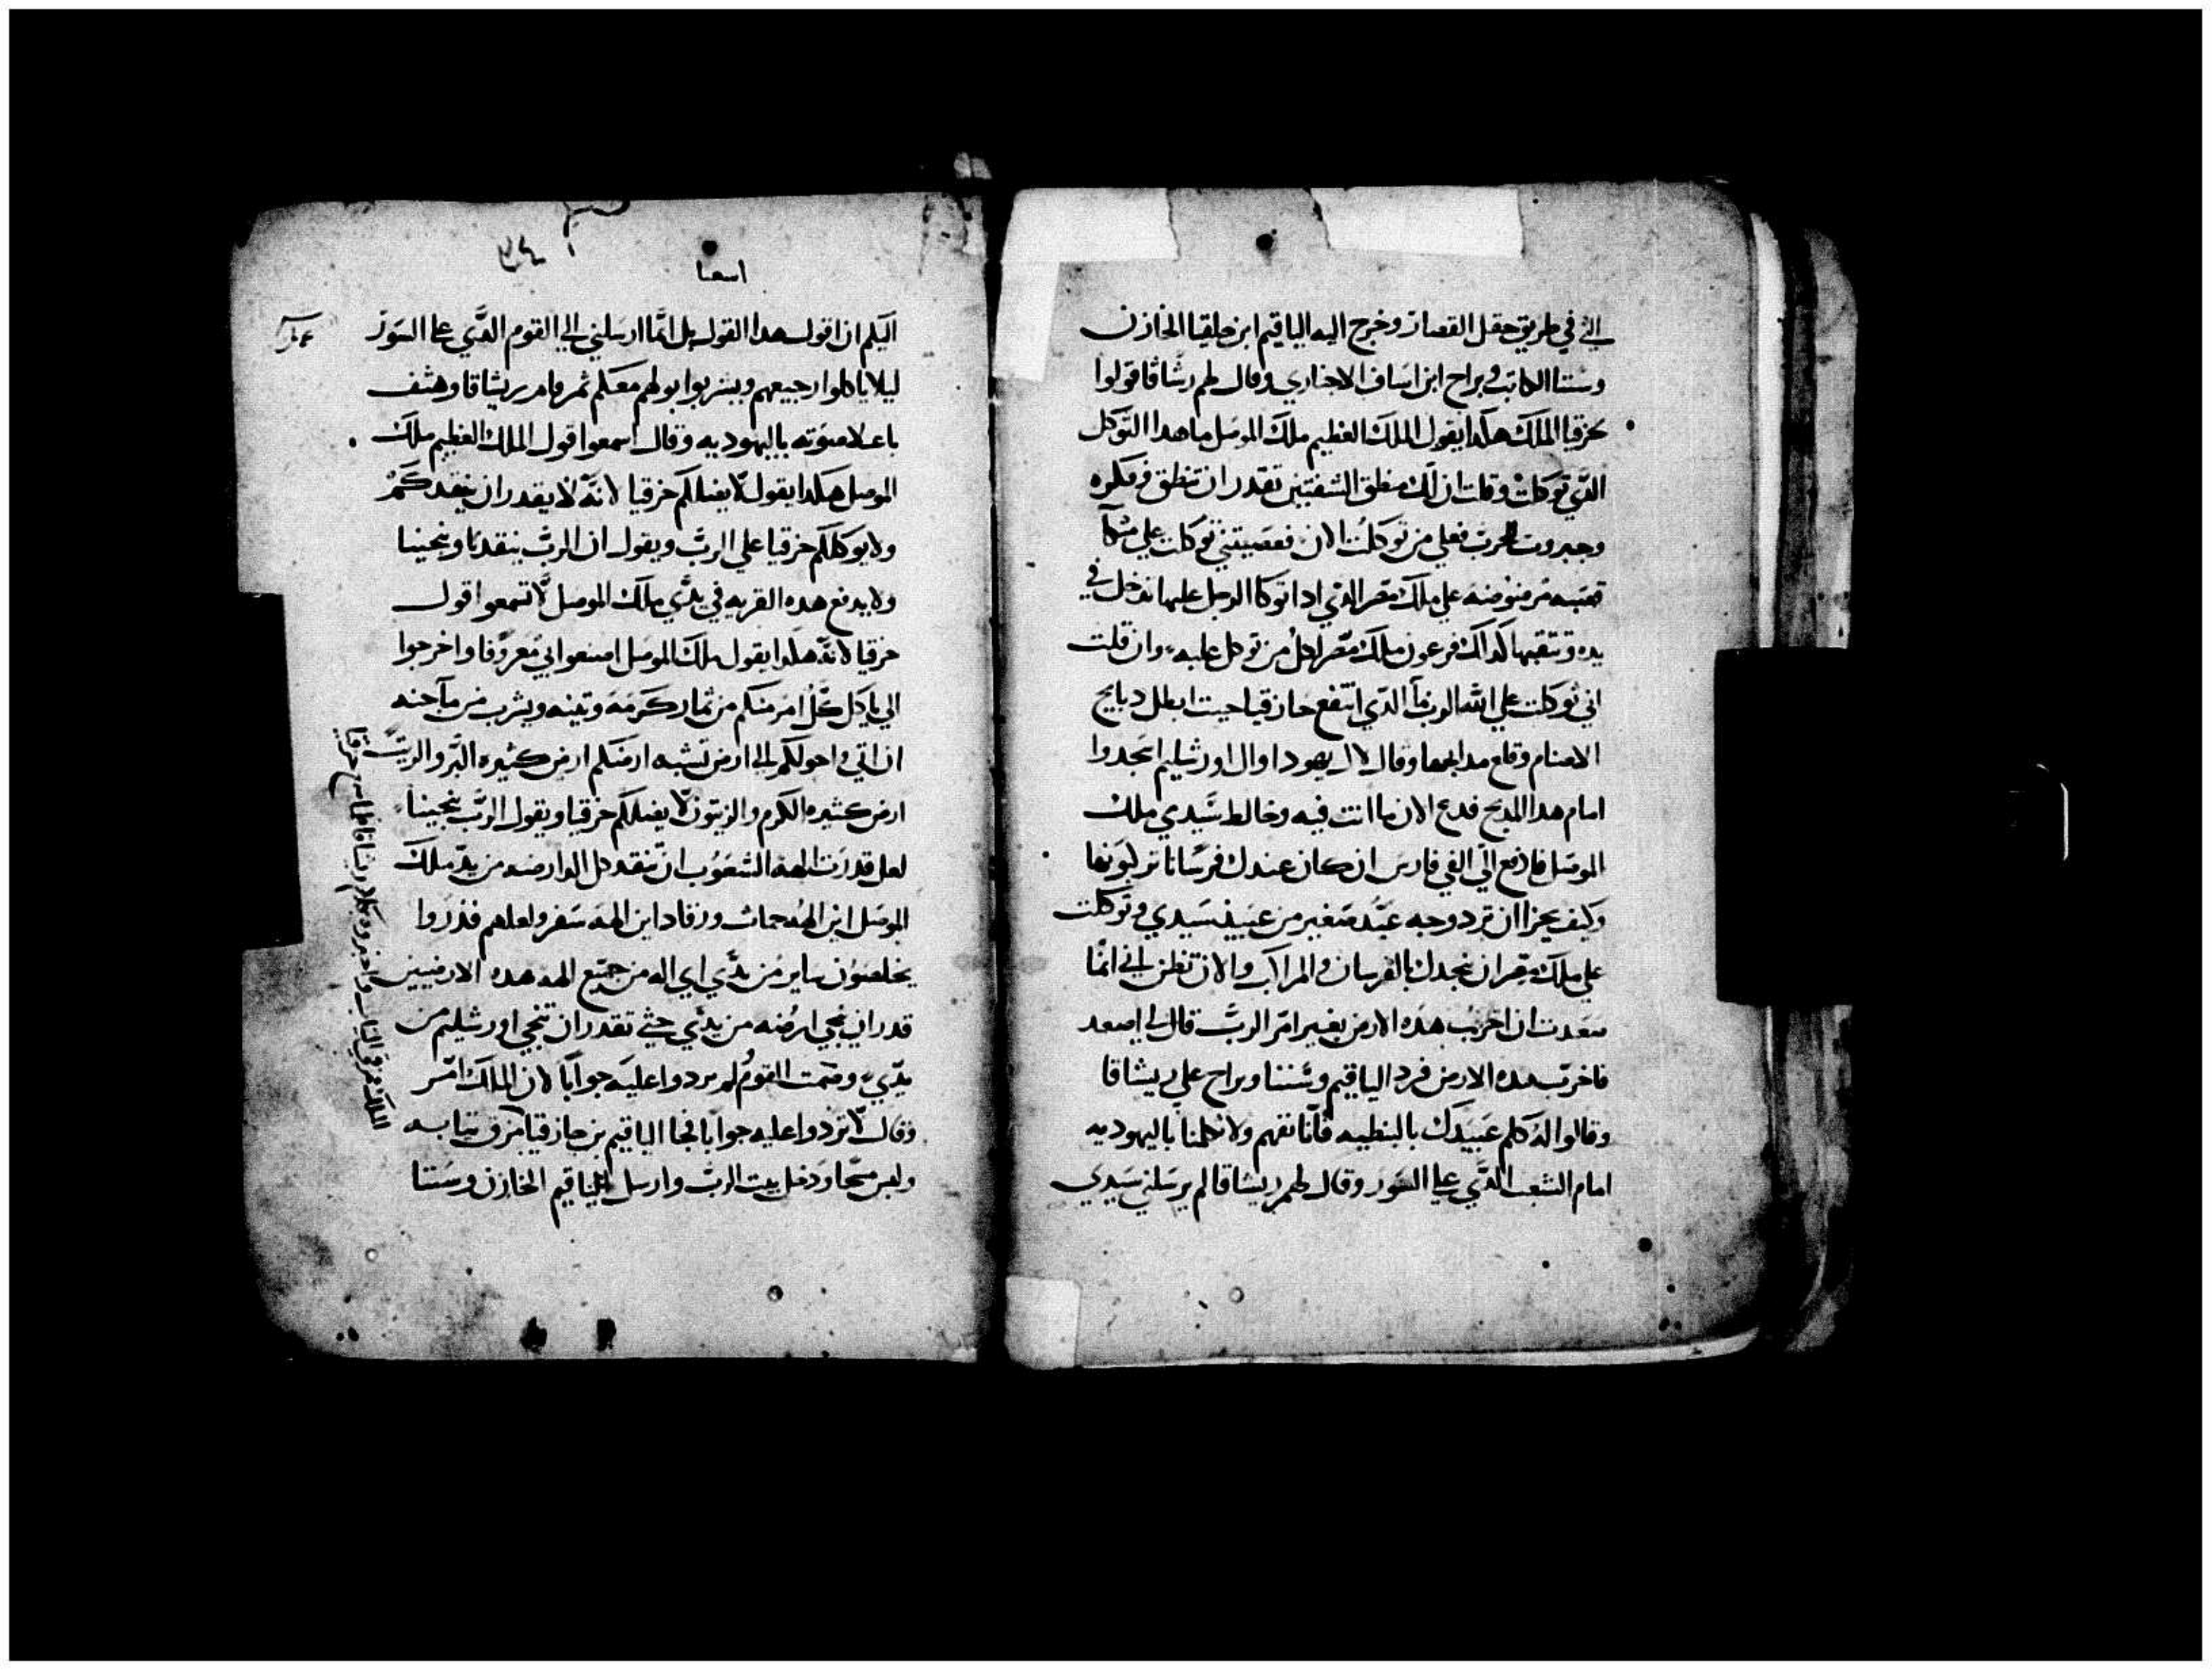 التي في طريق حقل القصار وخرج اليه الياقيم ابن حلقيا الخازن
وشتنا الكاتب ويراح ابن اساف الاخباري وقال لهم رشاقا قولوا
لحزقيا الملك هكدا يقول الملك العظيم ملك الموصل ما هدا التوكل
الدي توكلت وقلت ان لك منطق الشفتين تقدر ان تنطق فمكره
وجبروت للحرب فعلي من توكلت الان فعصيتني توكلت علي
قصبه مرضوضه علي ملك مصر الدي ادا توكا الرجل عليها تدخل في
يده وتتقبها كداك فرعون ملك مصر لكل من توكل عليه وان قلت
اني توكلت علي الله الرب فما الدي انتفع حازقيا حيت ابطل دبايح
الاصنام وقلع مدابحها وقال لال يهودا وال اورشليم اسجدوا
امام هدا المدبح فدع الان ما انت فيه وخالط سيدي ملك
الموصل فادفع الي الفي فارس ان كان عندك فرسانا تركبونها
وكيف يجزا ان ترد وجه عبد صغير من عبيد سيدي وتوكلت
علي ملك مصر ان ينجدك بالفرسان والمراكب والان تظن اني انما
صعدت ان اخرب هده الارض بغير امر الرب قال لي اصعد
فاخرب هده الارض فرد الياقيم وشتنا ويراح علي ريشاقا
وقالوا له كلم عبيدك بالنبطيه فانا نفهم ولا تكلمنا باليهوديه
امام الشعب الدي علي السور وقال لهم ريشاقا لم يرسلني سيدي
اسعيا
اليكم ان اقول هدا القول بل انما ارسلني الي القوم الدي علي السور
ليلا ياكلوا رجيعهم ويشربوا بولهم معكم ثم قام ريشاقا وهتف
باعلا صوته باليهوديه وقال اسمعوا قول الملك العظيم ملك
الموصل هكدا يقول لا يضلكم حزقيا لانه لا يقدر ان ينقدكم
ولا يوكلكم حزقيا علي الرب ويقول ان الرب ينقدنا وينجينا
ولا يدفع هده القريه في يدي ملك الموصل لا تسمعوا قول
حزقيا لانه هكدا يقول ملك الموصل اصنعوا بي معروفا واخرجوا
الي ياكل كل امر منكم من ثمار كرمه وتينه ويشرب من ما جبه
ان اتي واحولكم الي ارض تشبه ارضكم ارض كثيره البر والزيت
ارض كثيره الكرم والزيتون لا يضلكم حزقيا ويقول الرب ينجينا
لعل قدرت الهه الشعوب ان تنقد كل ارضه من يد ملك
الموصل اين الهه حمات ورفاد اين الهه سفر ولعلهم قدروا
يخلصون من يدي اي اله من جميع الهه هده الارضيين
قدر ان ينجي ارضه من يدي حتي تقدر ان تنجي اورشليم من
يدي وصمت القوم لم يردوا عليه جوابا لان الملك امر
وقال لا تردوا عليه جوابا فجا الياقيم بن حازقيا مزق ثيابه
ولبس مسحا ودخل بيت الرب وارسل الياقيم الخازن وشتنا